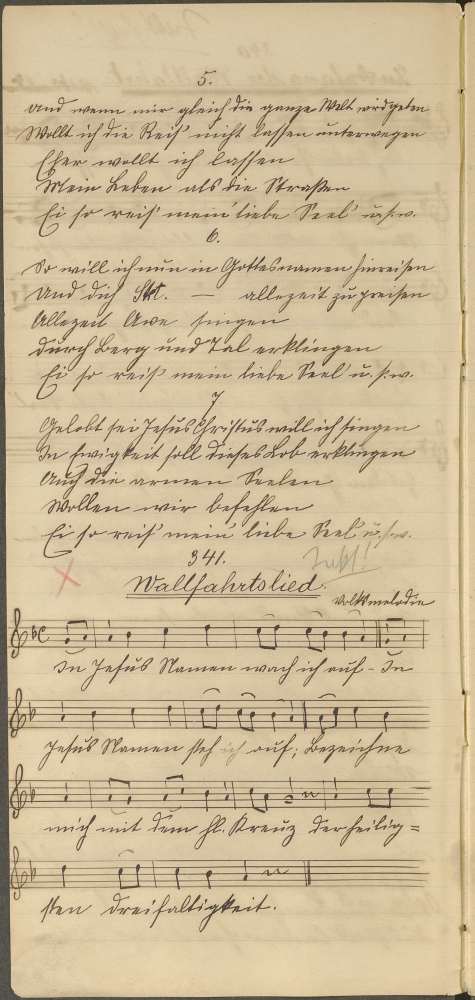 5.
Und wenn mir gleich die ganze Welt wird geben
Wollt ich die Reis' nicht lassen unterwegen
Eher wollt ich lassen
Mein Leben als die Straßen
Ei so reis' mein' liebe Seel' u.s.w.
6.
So will ich nun in Gottesnamen hinreisen
Und dich Skt. — allezeit zu preisen
Allezeit Awe singen
Durch Berg und Tal erklingen
Ei so reis' mein liebe Seel' u.s.w.
7
Gelobt sei Jesus Christus will ich singen
In Ewigkeit soll dieses Lob erklingen
Auch die armen Seelen
Wollen wir befehlen
Ei so reis' mein' liebe Seel' u.s.w.
341.
Wallfahrtslied.
Volksmelodie
In Jesus Namen wach ich auf - In
Jesus Namen steh ich auf; Bezeichne
mich mit dem hl. Kreuz der heilig=
sten Dreifaltigkeit.